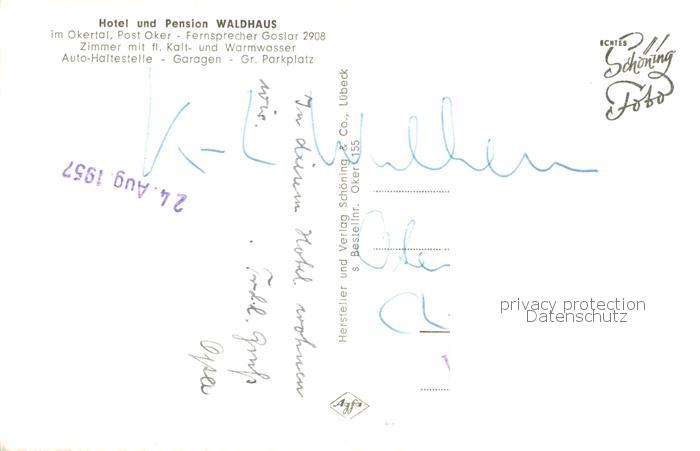 Hotel und Pension WALDHAUS
im Okertal, Post Oker - Fernsprecher Goslar 2908
Zimmer mit fl. Kalt- und Warmwasser
Auto-Haltestelle - Garagen - Gr. Parkplatz
ECHTES
Schöning
Foto
24. Aug. 1957
In diesem Hotel wohnen
wir.
Gruß
Opa
Hersteller und Verlag Schöning & Co., Lübeck
s. Bestellnr. Oker 155
Agfa
privacy protection
Datenschutz